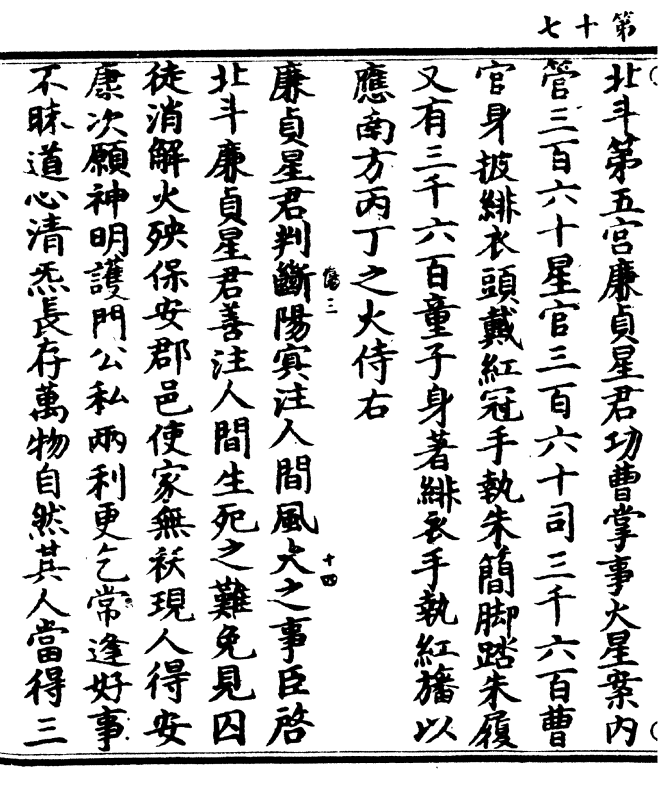 第十七
北斗第五宮廉貞星君功曹掌事火星案内
管三百六十星官三百六十司三千六百曹
官身披緋衣頭戴紅冠手執朱簡脚踏朱履
又有三千六百童子身著緋衣手執紅旛以
應南方丙丁之火侍右
廉貞星君判斷陽寘注人間風火之事臣啓
北斗廉貞星君善注人間生死之難免見囚
徒消解火殃保安郡邑使家無袄現人得安
康次願神明護門公私兩利更乞常逢好事
不昧道心清炁長存萬物自然其人當得三
十四